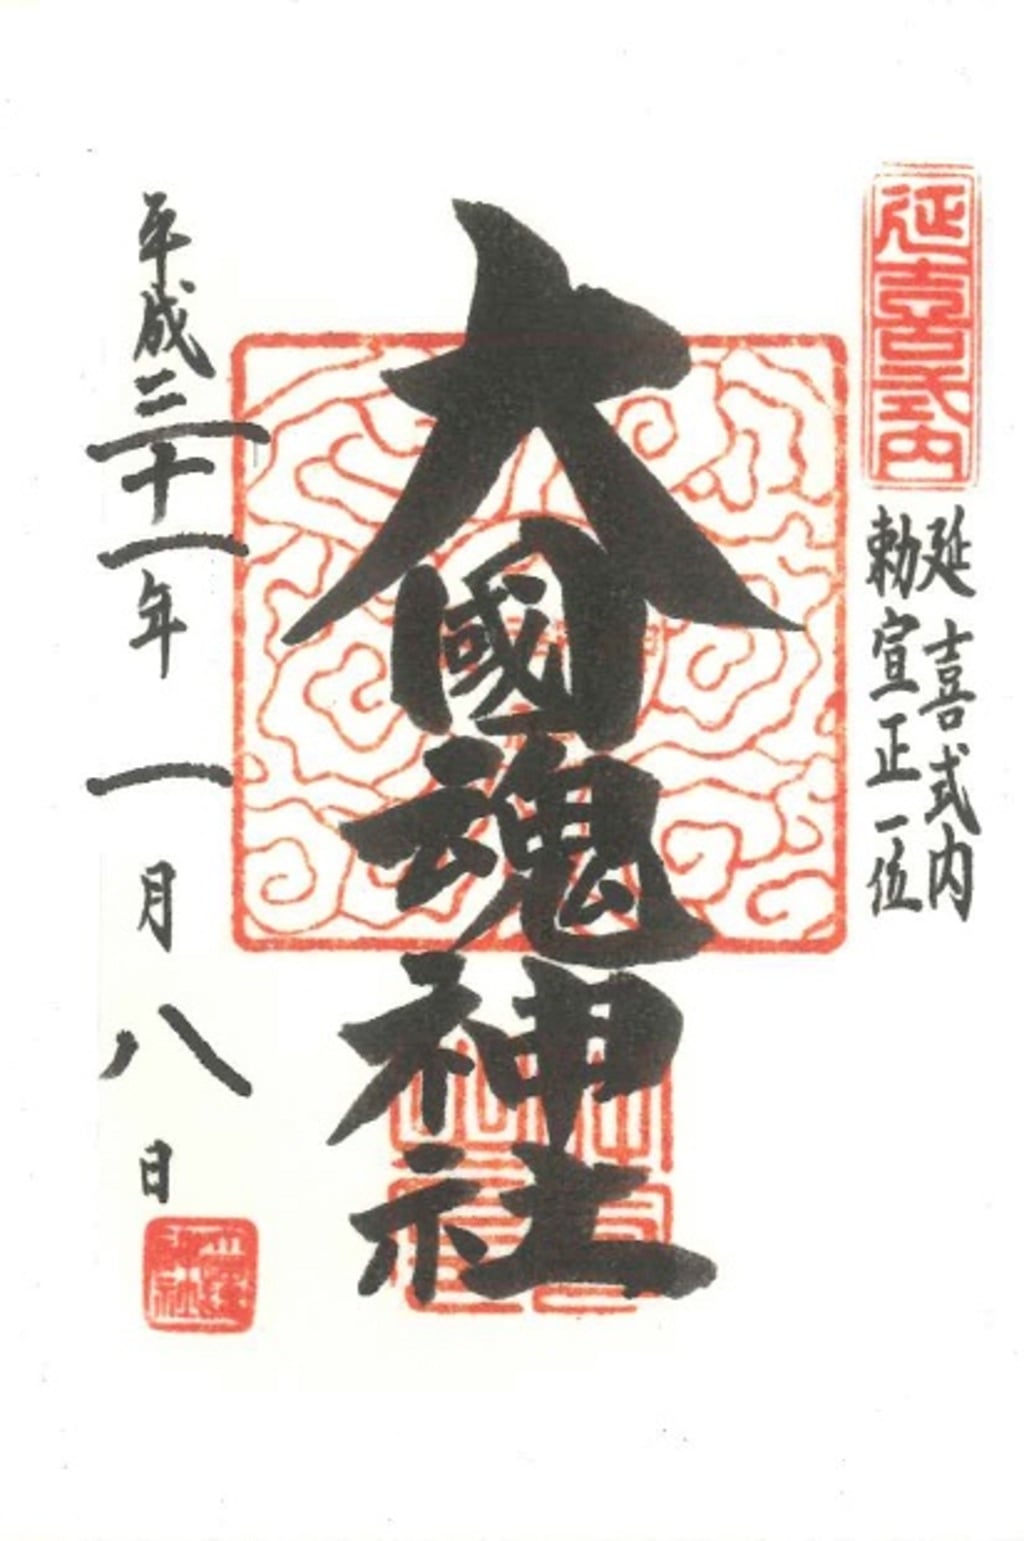 延喜式内
延喜式内
勅宣正一位
大國魂神社
平成三十一年 一月 八日